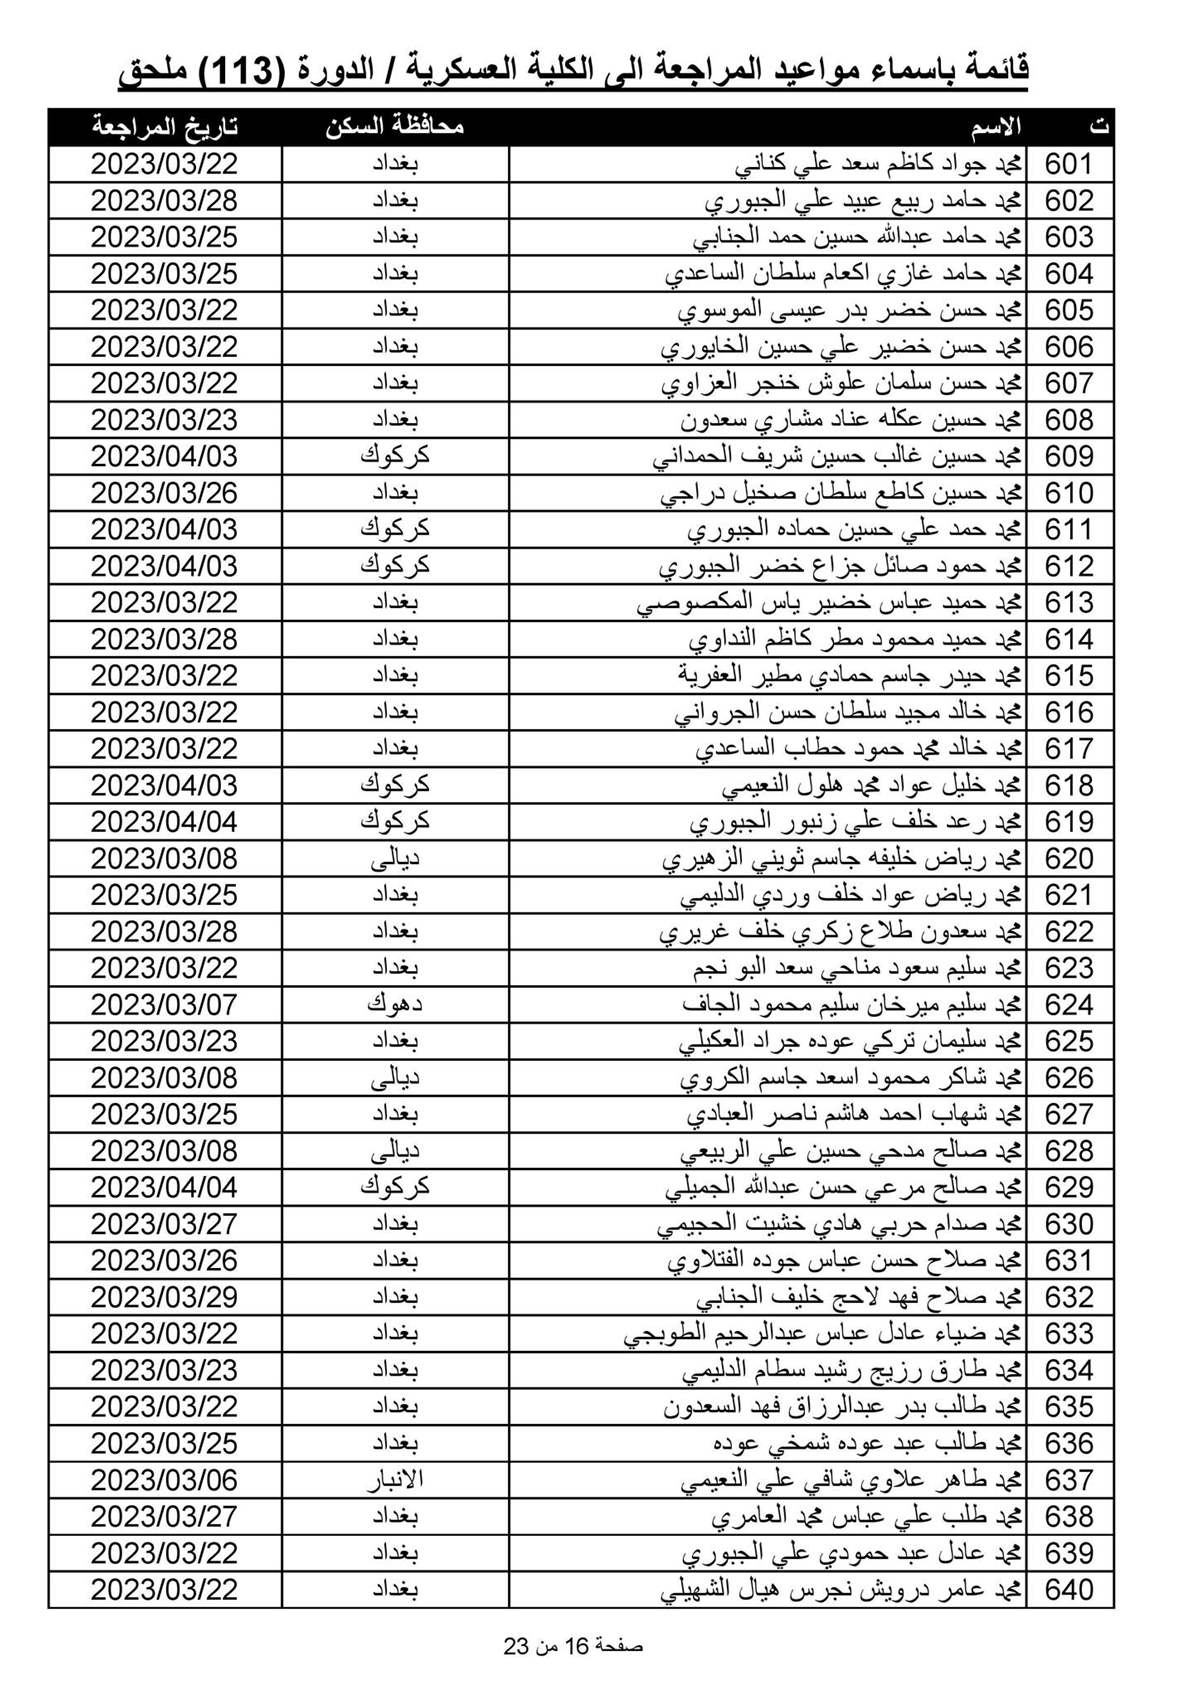 قائمة باسماء مواعيد المراجعة الى الكلية العسكرية / الدورة (113) ملحق
ت الاسم محافظة السكن تاريخ المراجعة
601 محمد جواد كاظم سعد علي كناني بغداد 2023/03/22
602 محمد حامد ربيع عبيد علي الجبوري بغداد 2023/03/28
603 محمد حامد عبدالله حسين حمد الجنابي بغداد 2023/03/25
604 محمد حامد غازي اكعام سلطان الساعدي بغداد 2023/03/25
605 محمد حسن خضر بدر عيسى الموسوي بغداد 2023/03/22
606 محمد حسن خضير علي حسين الخايوري بغداد 2023/03/22
607 محمد حسن سلمان علوش خنجر العزاوي بغداد 2023/03/22
608 محمد حسين عكله عناد مشاري سعدون بغداد 2023/03/23
609 محمد حسين غالب حسين شريف الحمداني كركوك 2023/04/03
610 محمد حسين كاطع سلطان صخيل دراجي بغداد 2023/03/26
611 محمد حمد علي حسين حماده الجبوري كركوك 2023/04/03
612 محمد حمود صائل جزاع خضر الجبوري كركوك 2023/04/03
613 محمد حميد عباس خضير ياس المكصوصي بغداد 2023/03/22
614 محمد حميد محمود مطر كاظم النداوي بغداد 2023/03/28
615 محمد حيدر جاسم حمادي مطير العفرية بغداد 2023/03/22
616 محمد خالد مجيد سلطان حسن الجرواني بغداد 2023/03/22
617 محمد خالد محمد حمود حطاب الساعدي بغداد 2023/03/22
618 محمد خليل عواد محمد هلول النعيمي كركوك 2023/04/03
619 محمد رعد خلف علي زنبور الجبوري كركوك 2023/04/04
620 محمد رياض خليفه جاسم ثويني الزهيري ديالى 2023/03/08
621 محمد رياض عواد خلف وردي الدليمي بغداد 2023/03/25
622 محمد سعدون طلاع زكري خلف غريري بغداد 2023/03/28
623 محمد سليم سعود مناحي سعد البو نجم بغداد 2023/03/22
624 محمد سليم ميرخان سليم محمود الجاف دهوك 2023/03/07
625 محمد سليمان تركي عوده جراد العكيلي بغداد 2023/03/23
626 محمد شاكر محمود اسعد جاسم الكروي ديالى 2023/03/08
627 محمد شهاب احمد هاشم ناصر العبادي بغداد 2023/03/25
628 محمد صالح مدحي حسين علي الربيعي ديالى 2023/03/08
629 محمد صالح مرعي حسن عبدالله الجميلي كركوك 2023/04/04
630 محمد صدام حربي هادي خشيت الحجيمي بغداد 2023/03/27
631 محمد صلاح حسن عباس جوده الفتلاوي بغداد 2023/03/26
632 محمد صلاح فهد لاحج خليف الجنابي بغداد 2023/03/29
633 محمد ضياء عادل عباس عبدالرحيم الطوبجي بغداد 2023/03/22
634 محمد طارق رزيج رشيد سطام الدليمي بغداد 2023/03/23
635 محمد طالب بدر عبدالرزاق فهد السعدون بغداد 2023/03/22
636 محمد طالب عبد عوده شمخي عوده بغداد 2023/03/25
637 محمد طاهر علاوي شافي علي النعيمي الانبار 2023/03/06
638 محمد طلب علي عباس محمد العامري بغداد 2023/03/27
639 محمد عادل عبد حمودي علي الجبوري بغداد 2023/03/22
640 محمد عامر درويش نجرس هيال الشهيلي بغداد 2023/03/22
صفحة 16 من 23